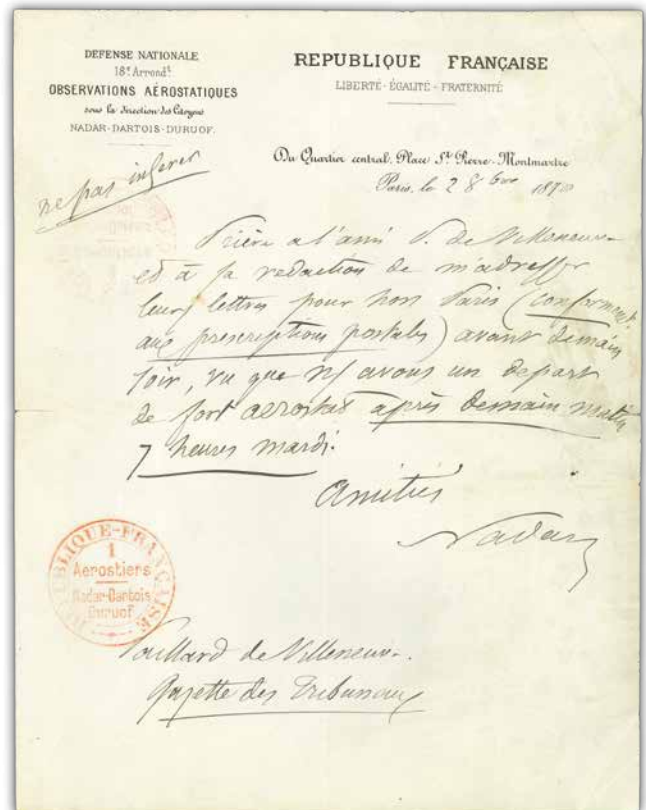 DEFENSE NATIONALE
18e. Arrondt.
OBSERVATIONS AÉROSTATIQUES
sous la direction des Citoyens
NADAR-DARTOIS-DURUOF.
REPUBLIQUE FRANÇAISE
LIBERTÉ - ÉGALITÉ - FRATERNITÉ
Du Quartier central, Place St. Pierre-Montmartre
Paris, le 2 8bre 1870
ne pas inserer
Prière a l'ami P. de Villeneuve
et à sa redaction de m'adresser
leurs lettres pour hors Paris (conformemt.
aux prescriptions postales) avant demain
soir, vu que ns avons un depart
de fort aerostat après demain matin
7 heures mardi.
Amitiés
Nadar
REPUBLIQUE-FRANÇAISE
1
Aerostiers
Nadar-Dartois
Duruof
Paillard de Villeneuve.
Gazette des Tribunaux